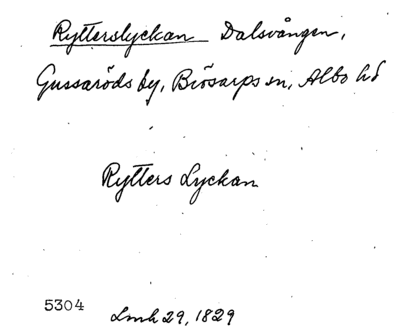 Rytterslyckan Dalsvången,
Gussaröds by, Brösarps sn, Albo hd
Rytters Lyckan
5304 Lmh 29, 1829